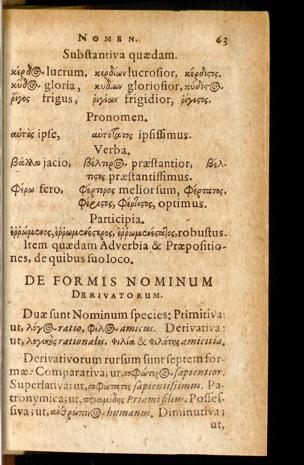 NOMEN. 63
Substantiva quædam.
κέρδ⊙ lucrum, κερδίων lucrosior, κέρδιςος.
κῦδ⊙ gloria, κυδίων gloriosior, κύδιςος
ῥῖγος frigus, ῥιγίων frigidior, ῥίγιςος.
Pronomen.
αὐτὸς ipse, αὐτότατος ipsissimus.
Verba.
βάλλω jacio, βέλτερ⊙ præstantior, βέλ-
τιςος præstantissimus.
Φέρω fero, Φέρτερος meliorsum, Φέρτατος,
Φέριςος, optimus.
Participia.
ἐῤῥωμένος, robustus.
Item quædam Adverbia & Præpositio-
nes, de quibus suo loco.
DE FORMIS NOMINUM
DERIVATORUM.
Duæ sunt Nominum species; Primitiva:
ut, λόγ⊙ ratio, φίλ⊙ amicus. Derivativa:
ut, λογικὸς rationalis. Φιλία & Φιλότης amicitia.
Derivatorum rursum sunt septem for-
mæ: Comparativa; ut, σοφώτερ⊙ sapientior.
Superlativa; ut, σοφώτατος sapientissimus. Pa-
tronymica; ut, πριαμίδης Priami filius. Posses-
siva; ut, humanus. Diminutiva;
ut,